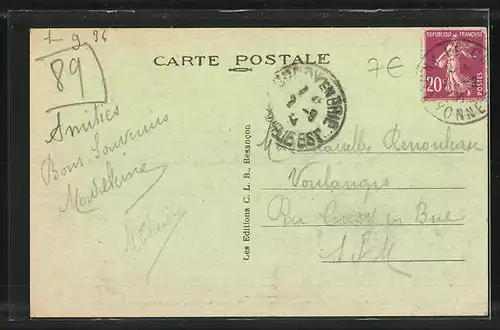 1-9 34
89
CARTE POSTALE
7€
REPUBLIQUE FRANÇAISE
20c
POSTES
YONNE
Amitiés
Bons Souvenirs
Madeleine
Les Editions C. L. B., Besançon
Voulangis
Par Crécy en Brie
S/M